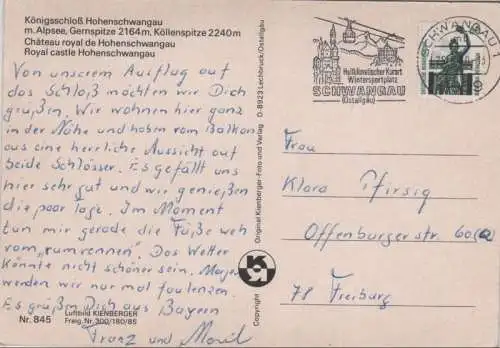 Königsschloß Hohenschwangau
m. Alpsee, Gernspitze 2164m, Köllenspitze 2240m
Château royal de Hohenschwangau
Royal castle Hohenschwangau
Von unserem Ausflug auf
das Schloß möchten wir Dich
grüßen. Wir wohnen hier ganz
in der Nähe und haben vom Balkon
aus eine herrliche Aussicht auf
beide Schlösser. Es gefällt uns
hier sehr gut und wir genießen
die paar Tage. Im Moment
tun mir gerade die Füße weh
vom „rumrennen". Das Wetter
könnte nicht schöner sein. Morgen
werden wir nur mal faulenzen.
Es grüßen Dich aus Bayern
Franz und
Nr. 845
Luftbild KIENBERGER
Freig. Nr. 300/180/85
Copyright
Original Kienberger-Foto und Verlag D-8923 Lechbruck/Ostallgäu
Heilklimatischer Kurort
Wintersportplatz
SCHWANGAU
(Ostallgäu)
SCHWANGAU 1
Frau
Klara Pfirsig
Offenburgerstr. 60
78 Freiburg